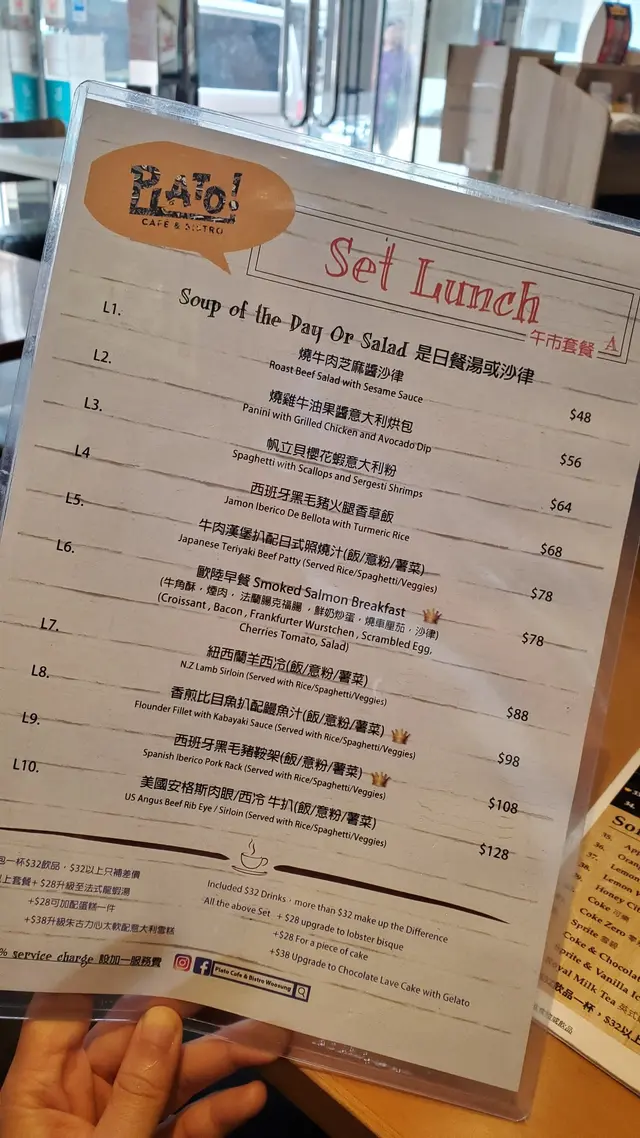 PLATO!
CAFE & BISTRO
Set Lunch
午市套餐 A
Soup of the Day Or Salad 是日餐湯或沙律
L1. 燒牛肉芝麻醬沙律
Roast Beef Salad with Sesame Sauce $48
L2. 燒雞牛油果醬意大利烘包
Panini with Grilled Chicken and Avocado Dip $56
L3. 帆立貝櫻花蝦意大利粉
Spaghetti with Scallops and Sergesti Shrimps $64
L4 西班牙黑毛豬火腿香草飯
Jamon Iberico De Bellota with Turmeric Rice $68
L5. 牛肉漢堡扒配日式照燒汁(飯/意粉/薯菜)
Japanese Teriyaki Beef Patty (Served Rice/Spaghetti/Veggies) $78
L6. 歐陸早餐 Smoked Salmon Breakfast
(牛角酥，煙肉，法蘭腸克福腸，鮮奶炒蛋，燒車厘茄，沙律)
(Croissant , Bacon , Frankfurter Wurstchen , Scrambled Egg, $78
Cherries Tomato, Salad)
L7. 紐西蘭羊西冷(飯/意粉/薯菜)
N.Z Lamb Sirloin (Served with Rice/Spaghetti/Veggies) $88
L8. 香煎比目魚扒配鰻魚汁(飯/意粉/薯菜)
Flounder Fillet with Kabayaki Sauce (Served with Rice/Spaghetti/Veggies) $98
L9. 西班牙黑毛豬鞍架(飯/意粉/薯菜)
Spanish Iberico Pork Rack (Served with Rice/Spaghetti/Veggies) $108
L10. 美國安格斯肉眼/西冷 牛扒(飯/意粉/薯菜)
US Angus Beef Rib Eye / Sirloin (Served with Rice/Spaghetti/Veggies) $128
包一杯$32飲品，$32以上只補差價
上套餐+ $28升級至法式龍蝦湯
+$28可加配蛋糕一件
+$38升級朱古力心太軟配意大利雪糕
Included $32 Drinks，more than $32 make up the Difference
All the above Set + $28 upgrade to lobster bisque
+$28 For a piece of cake
+$38 Upgrade to Chocolate Lave Cake with Gelato
% service charge 設加一服務費
Plato Cafe & Bistro Woosung
35.
36. Oran
37. Lemon
38. Lemon
Honey Cit
Coke 可樂
Coke Zero
Sprite 雪碧
Coke & Chocola
Sprite & Vanilla
Royal Milk Tea 英式
飲品一杯，$32以上